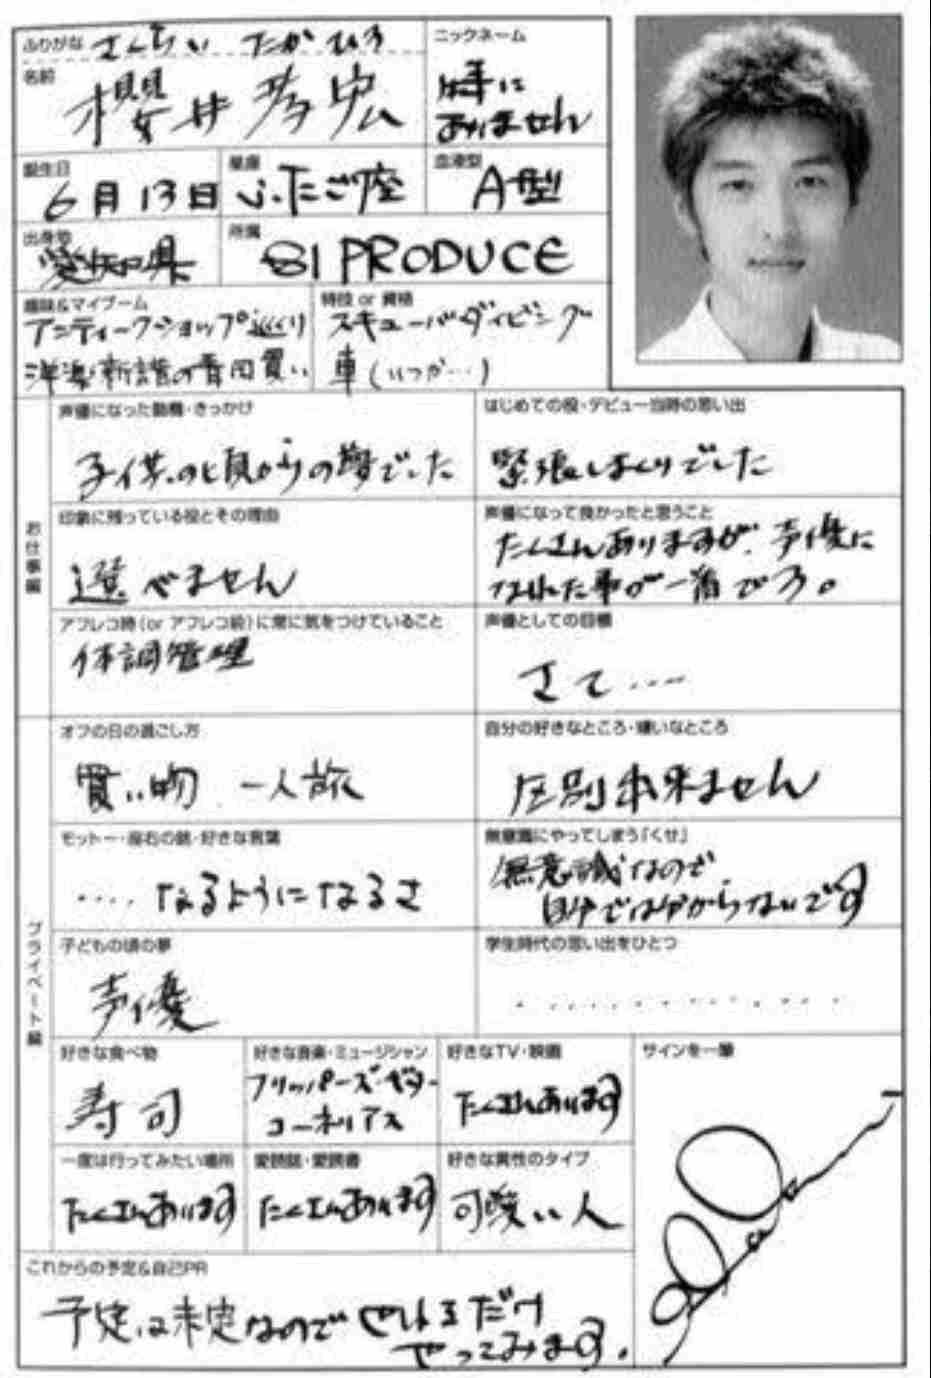 ふりがな さくらい たかひろ
名前
櫻井孝宏
ニックネーム
特に
ありません
誕生日
6月13日
星座
ふたご座
血液型
A型
出身地
愛知県
所属
81 PRODUCE
趣味&マイブーム
アンティークショップ巡り
洋楽新譜の青田買い
特技 or 資格
スキューバダイビング
車(いつか…)
お仕事編
声優になった動機・きっかけ
子供の頃からの夢でした
はじめての役・デビュー当時の思い出
緊張しまくりでした
印象に残っている役とその理由
選べません
声優になって良かったと思うこと
たくさんありますが、声優に
なれた事が一番です。
アフレコ時(or アフレコ前)に常に気をつけていること
体調管理
声優としての目標
さて....
プライベート編
オフの日の過ごし方
買い物 一人旅
自分の好きなところ・嫌いなところ
区別出来ません
モットー・座右の銘・好きな言葉
....なるようになるさ
無意識にやってしまう「くせ」
無意識なので、
自分では分からないです
子どもの頃の夢
声優
学生時代の思い出をひとつ
..............
好きな食べ物
寿司
好きな音楽・ミュージシャン
フリッパーズ・ギター
コーネリアス
好きなTV・映画
たくさんあります
サインを一筆
一度は行ってみたい場所
たくさんあります
愛読誌・愛読書
たくさんあります
好きな異性のタイプ
可愛い人
これからの予定&自己PR
予定は未定なので やれるだけ
やってみます。